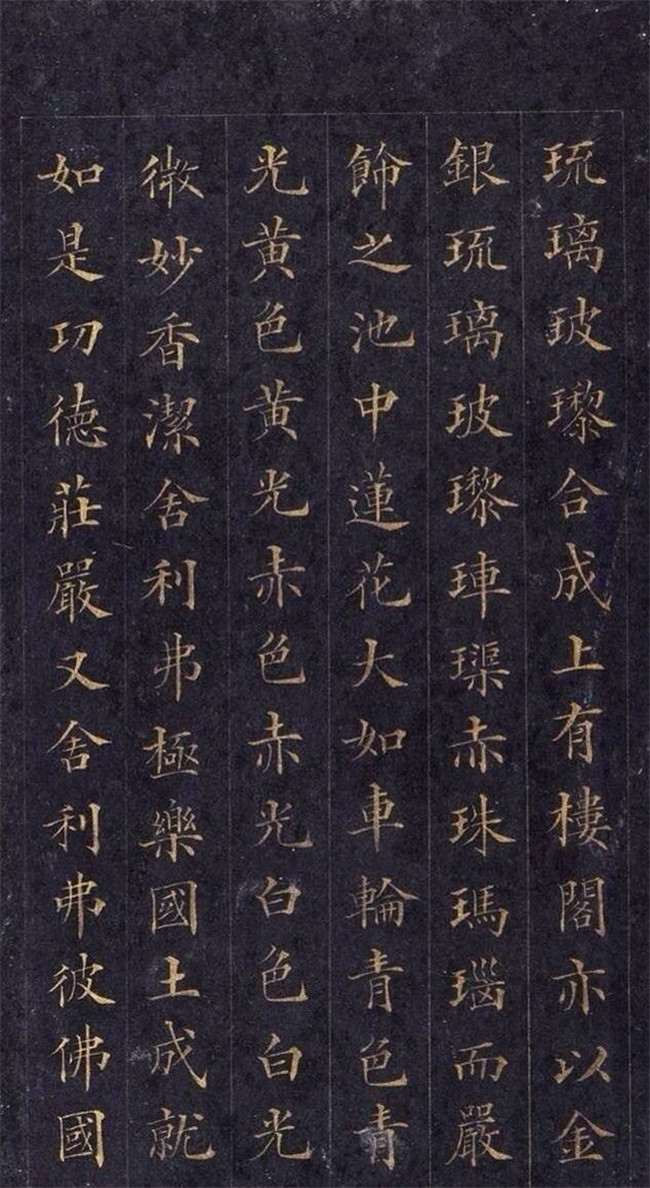 琉璃玻瓈合成上有樓閣亦以金
銀琉璃玻瓈硨璖赤珠瑪瑙而嚴
飾之池中蓮花大如車輪青色青
光黄色黄光赤色赤光白色白光
微妙香潔舍利弗極樂國土成就
如是功德莊嚴又舍利弗彼佛國